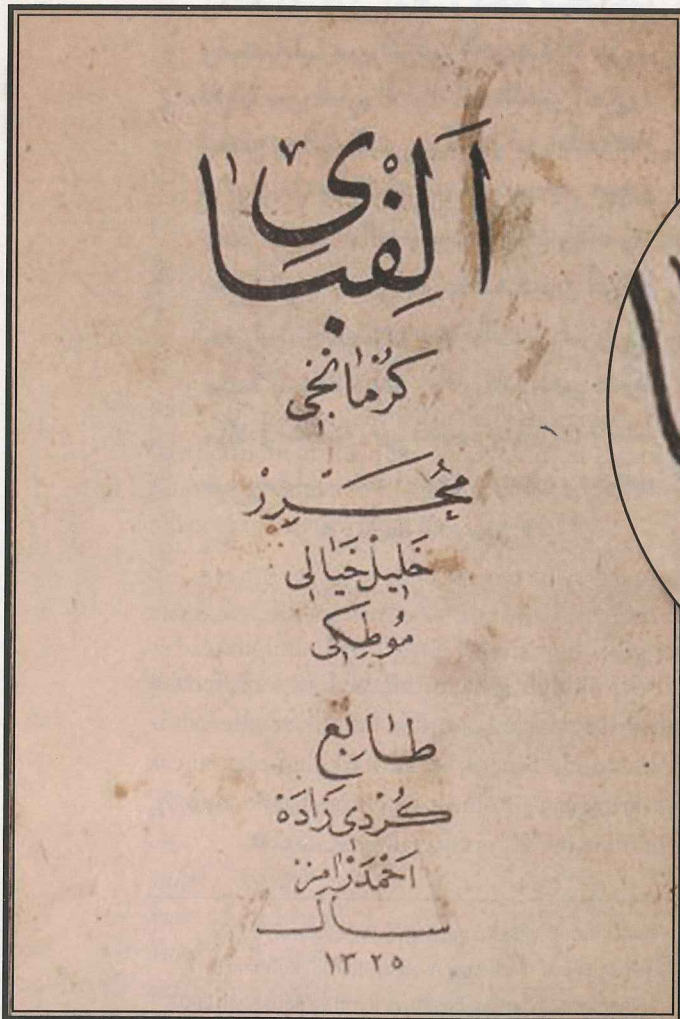 اَلِفْبَای
كُرْمَانْجِی
مُحَرِّرْ
خَلِیلْ خَیَالِی
مُوطِكِی
طَابِعْ
كُرْدِی زَادَهْ
اَحْمَدْ رَامِزْ
سال
١٣٢٥